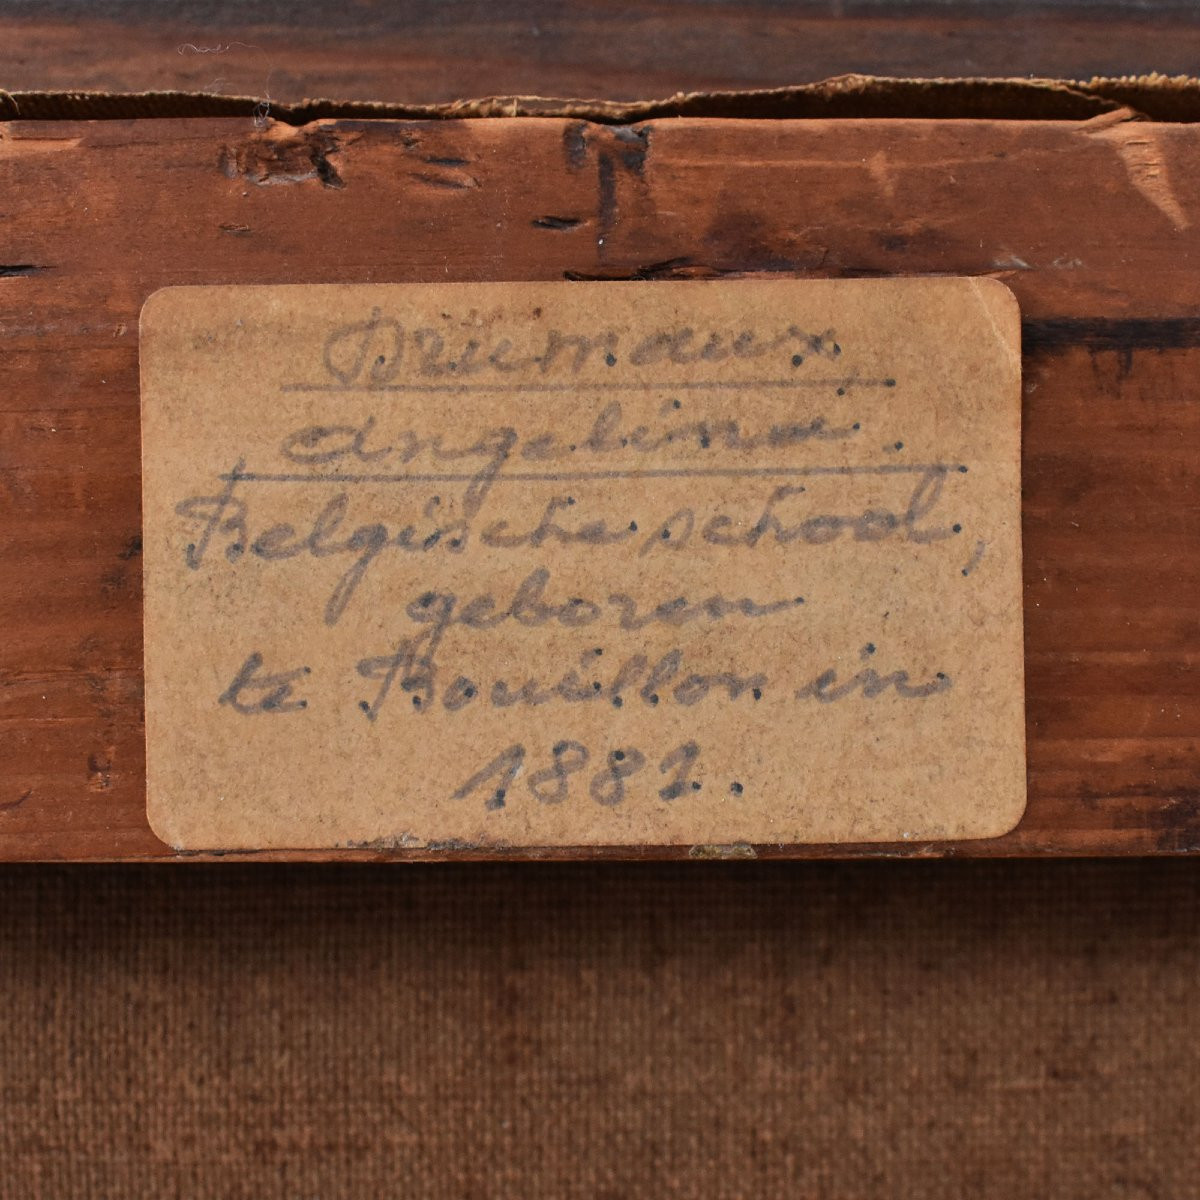 Drumaux,
Angelina.
Belgische school,
geboren
te Bouillon in
1881.